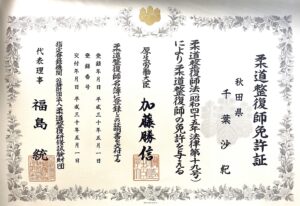 柔道整復師免許証
秋田県
千葉沙紀
柔道整復師法(昭和四十五年法律第十九号)
により柔道整復師の免許を与える
厚生労働大臣 加藤勝信
柔道整復師名簿に登録しこの証明書を交付する
登録年月日 平成三十年五月一日
登録番号
交付年月日 平成三十年五月一日
指定登録機関 公益財団法人 柔道整復研修試験財団
代表理事 福島統